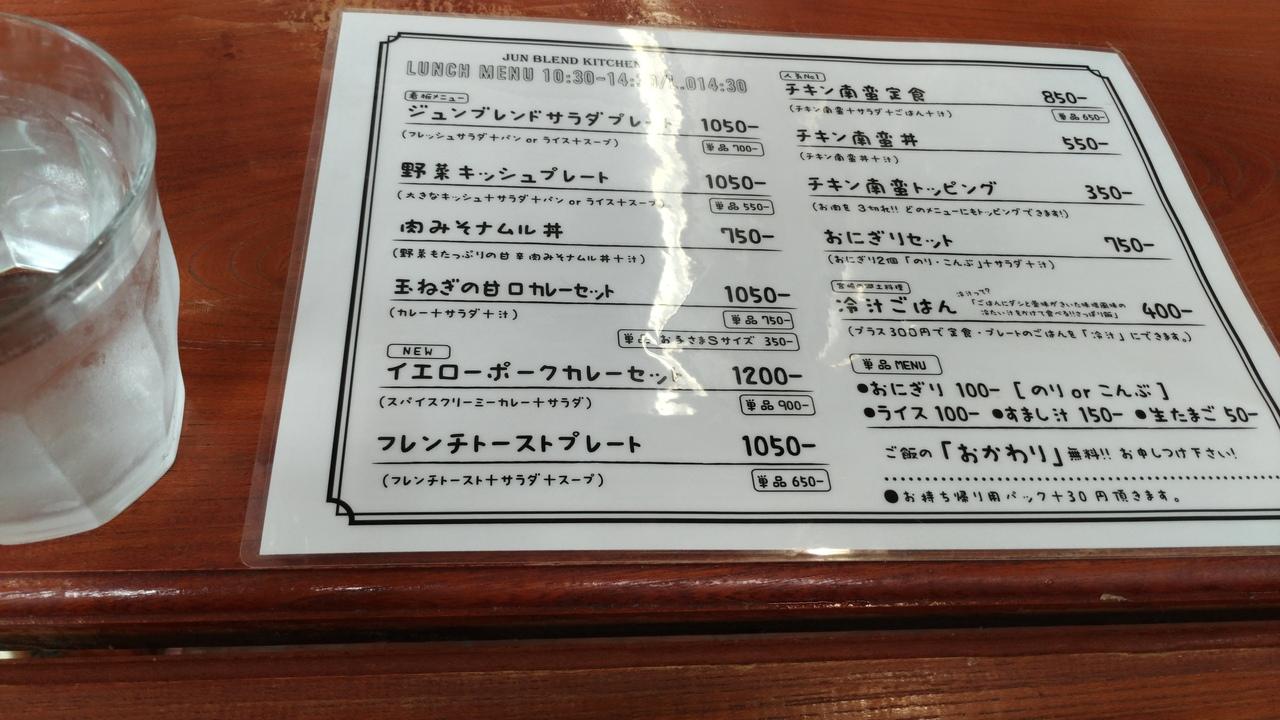 JUN BLEND KITCHEN
LUNCH MENU 10:30-14:30/L.O14:30
看板メニュー
ジュンブレンドサラダプレート 1050-
(フレッシュサラダ+パン or ライス+スープ) 単品 700-
野菜キッシュプレート 1050-
(大きなキッシュ+サラダ+パン or ライス+スープ) 単品 550-
肉みそナムル丼 750-
(野菜もたっぷりの甘辛肉みそナムル丼+汁)
玉ねぎの甘口カレーセット 1050-
(カレー+サラダ+汁) 単品 750-
単品 お子さまSサイズ 350-
NEW
イエローポークカレーセット 1200-
(スパイスクリーミーカレー+サラダ) 単品 900-
フレンチトーストプレート 1050-
(フレンチトースト+サラダ+スープ) 単品 650-
人気No1
チキン南蛮定食 850-
(チキン南蛮+サラダ+ごはん+汁) 単品 650-
チキン南蛮丼 550-
(チキン南蛮丼+汁)
チキン南蛮トッピング 350-
(お肉を3切れ!! どのメニューにもトッピングできます!)
おにぎりセット 750-
(おにぎり2個「のり・こんぶ」+サラダ+汁)
宮崎の郷土料理
冷汁ごはん 400-
冷汁って?
「ごはんにダシと薬味がきいた味噌風味の
冷たい汁をかけて食べる!!さっぱり飯」
(プラス300円で定食・プレートのごはんを「冷汁」にできます。)
単品 MENU
●おにぎり 100- [のり or こんぶ]
●ライス 100- ●すまし汁 150- ●生たまご 50-
ご飯の「おかわり」無料!! お申しつけ下さい!
●お持ち帰り用パック+30円頂きます。